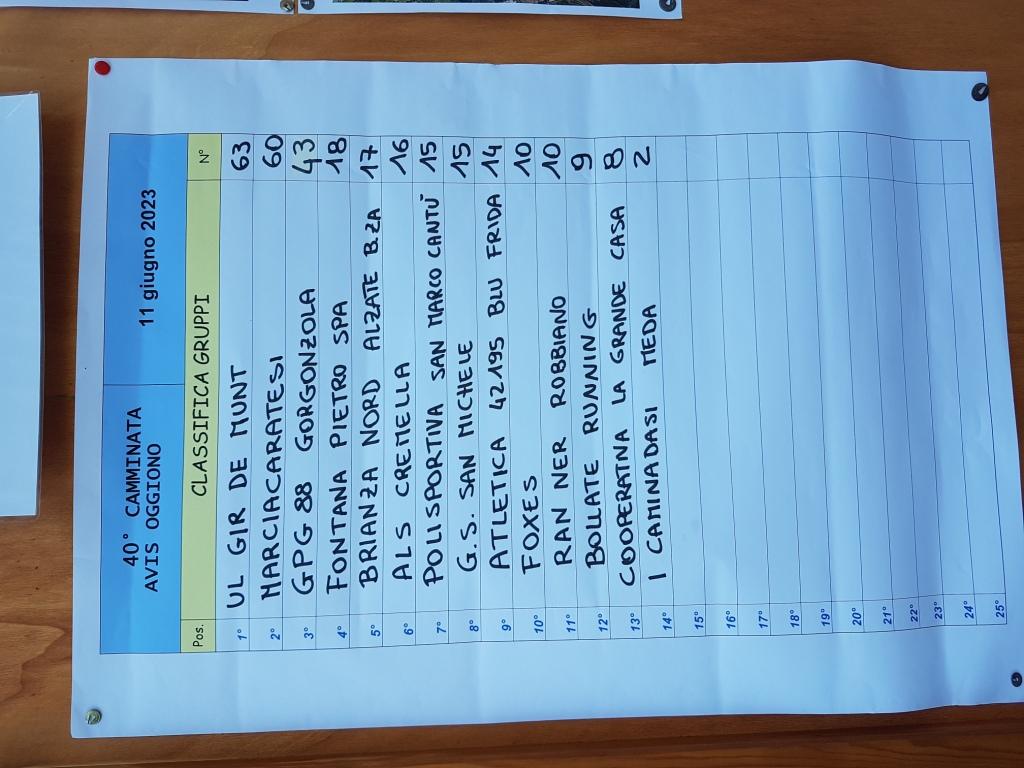 40° CAMMINATA
AVIS OGGIONO
11 giugno 2023
Pos. CLASSIFICA GRUPPI N°
1° UL GIR DE MUNT 63
2° MARCIACARATESI 60
3° GPG 88 GORGONZOLA 43
4° FONTANA PIETRO SPA 18
5° BRIANZA NORD ALZATE B.ZA 17
6° ALS CREMELLA 16
7° POLISPORTIVA SAN MARCO CANTÙ 15
8° G.S. SAN MICHELE 15
9° ATLETICA 42195 BLU FRIDA 14
10° FOXES 10
11° RAN NER ROBBIANO 10
12° BOLLATE RUNNING 9
13° COOPERATIVA LA GRANDE CASA 8
14° I CAMINADASI MEDA 2
15°
16°
17°
18°
19°
20°
21°
22°
23°
24°
25°